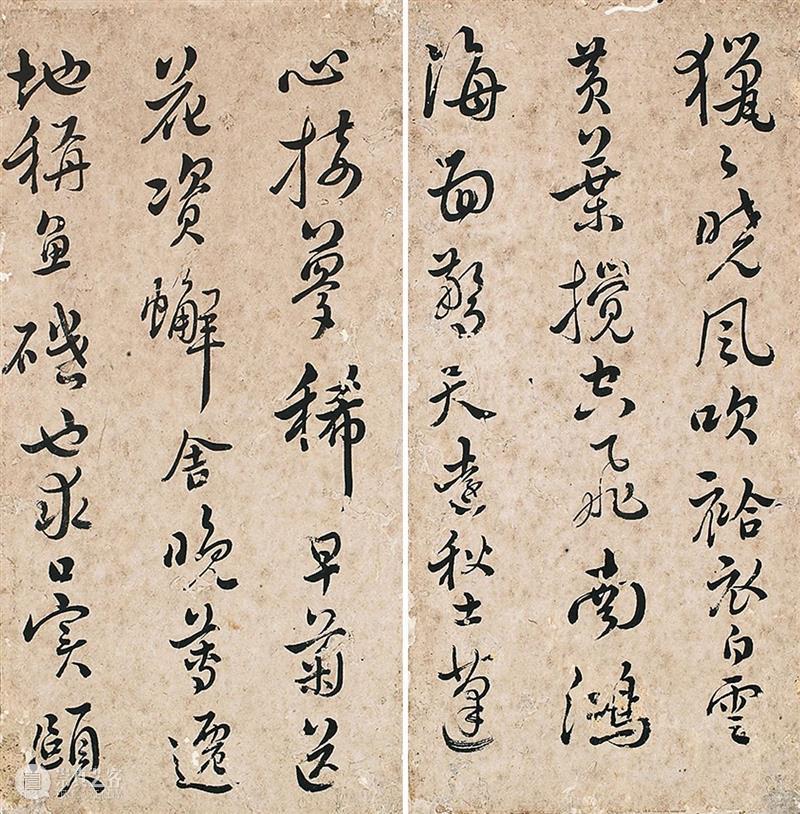 獵々曉風吹袷衣白雲
黃葉攪空飛南鴻
海驚天遠秋士蓬
心接夢稀早菊送
花資蠏舍晚蓴遷
地稱魚磯也求口實頤